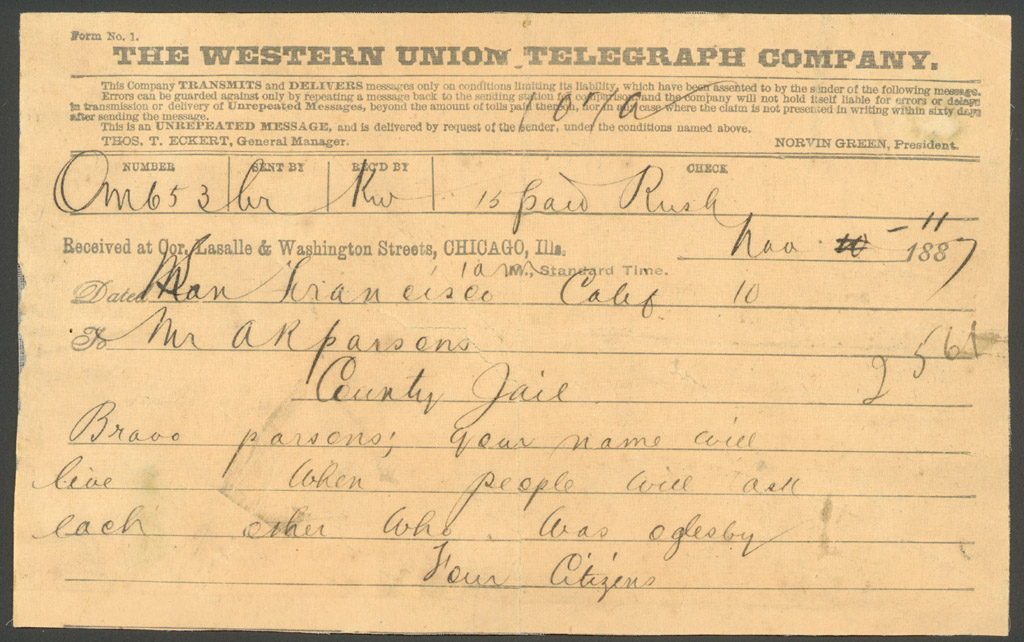 Form No. 1.
THE WESTERN UNION TELEGRAPH COMPANY.
This Company TRANSMITS and DELIVERS messages only on conditions limiting its liability, which have been assented to by the sender of the following message.
Errors can be guarded against only by repeating a message back to the sending station for comparison, and the company will not hold itself liable for errors or delays
in transmission or delivery of Unrepeated Messages, beyond the amount of tolls paid thereon, nor in any case where the claim is not presented in writing within sixty days
after sending the message.
This is an UNREPEATED MESSAGE, and is delivered by request of the sender, under the conditions named above.
THOS. T. ECKERT, General Manager. NORVIN GREEN, President.
NUMBER SENT BY REC'D BY CHECK
Om653 Kw 15 paid Rush
Received at Cor. Lasalle & Washington Streets, CHICAGO, Ills. Nov 10 - 11 1887
M., Standard Time.
Dated San Francisco Calif 10
To Mr A R parsons 561
County Jail
Bravo parsons; your name will
live when people will ask
each other who was oglesby
Four Citizens